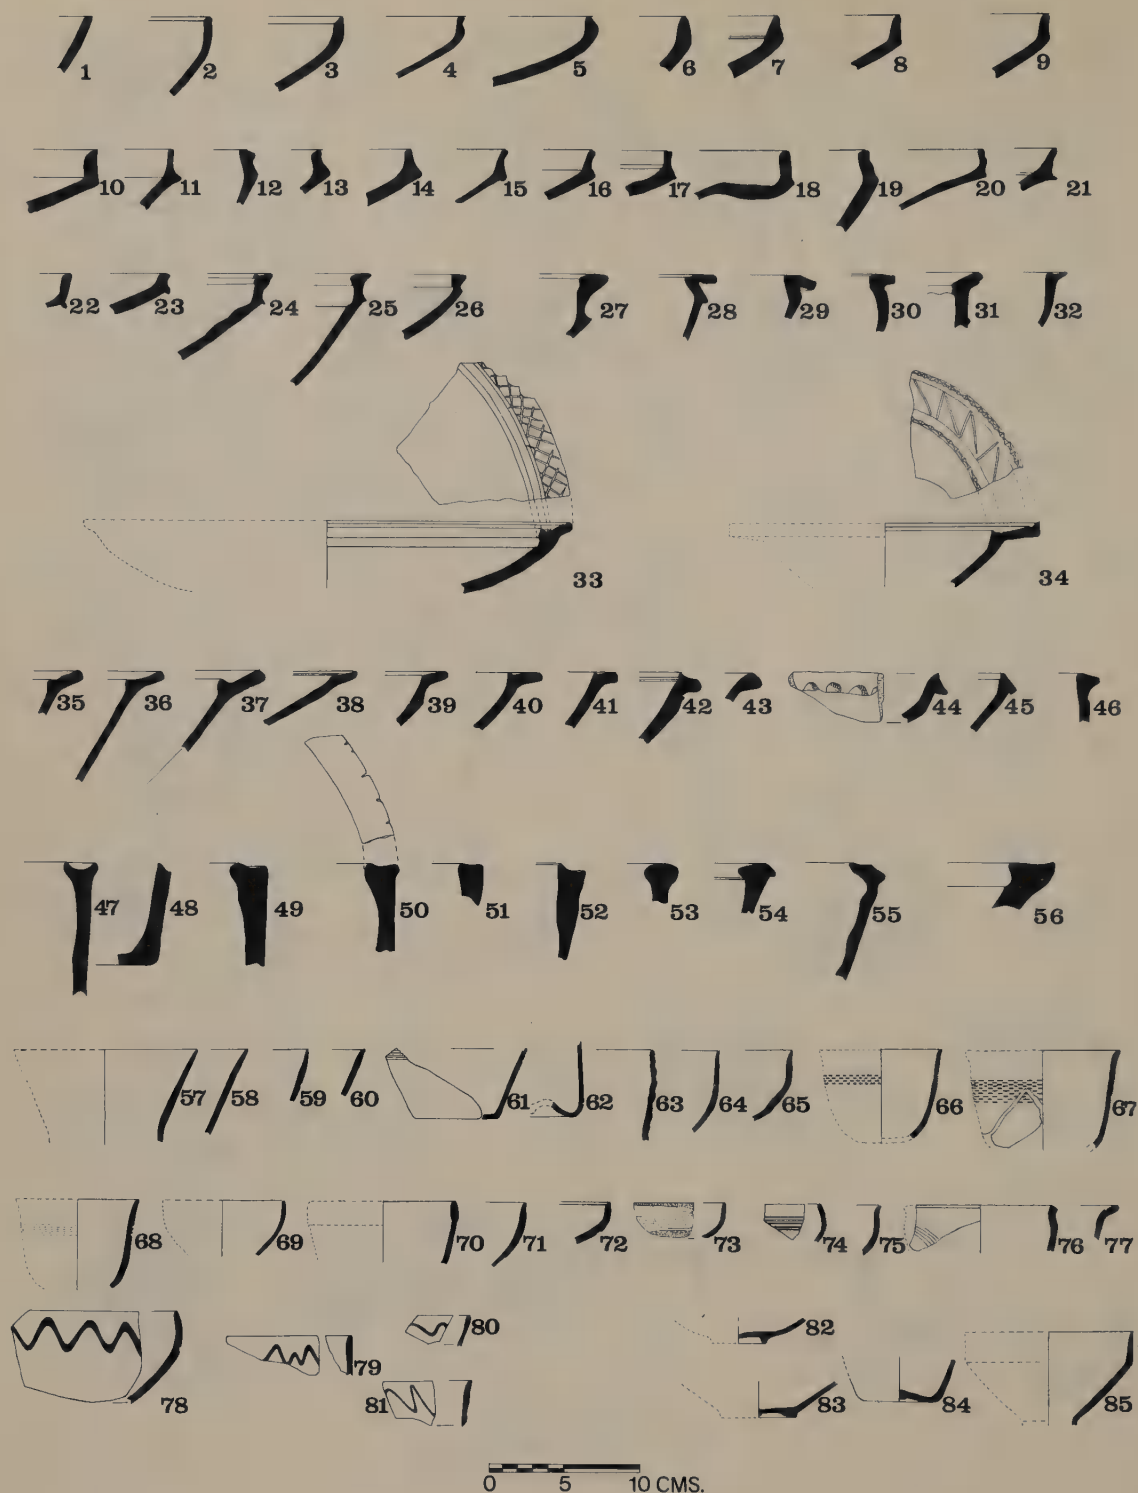 1 2 3 4 5 6 7 8 9
10 11 12 13 14 15 16 17 18 19 20 21
22 23 24 25 26 27 28 29 30 31 32
33 34
35 36 37 38 39 40 41 42 43 44 45 46
47 48 49 50 51 52 53 54 55 56
57 58 59 60 61 62 63 64 65 66 67
68 69 70 71 72 73 74 75 76 77
78 79 80 82
81 83 84 85
0 5 10 CMS.